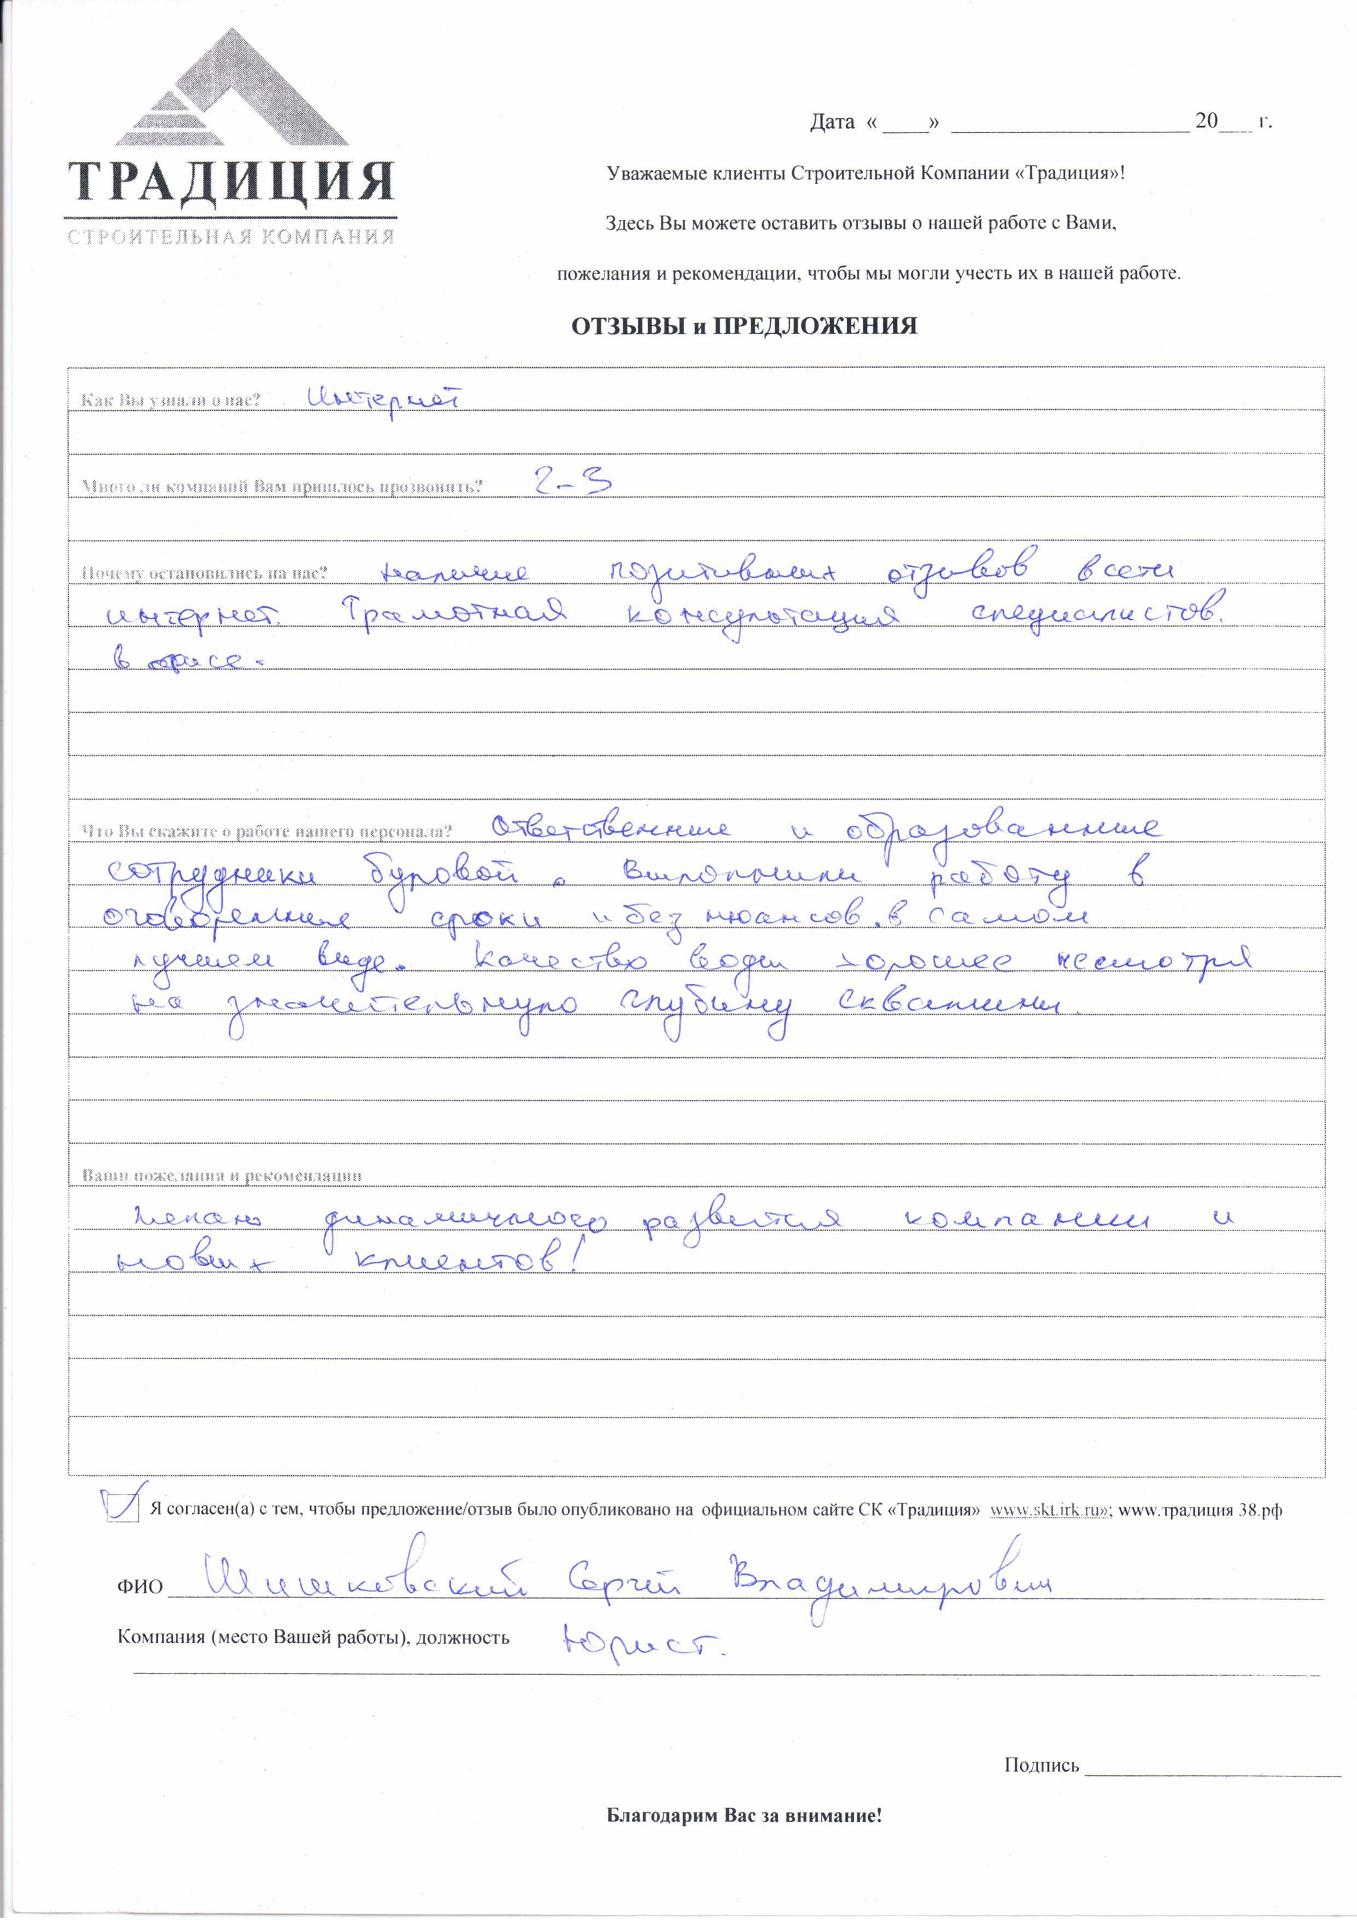 ТРАДИЦИЯ
СТРОИТЕЛЬНАЯ КОМПАНИЯ
Дата «____» ______________________ 20___ г.
Уважаемые клиенты Строительной Компании «Традиция»!
Здесь Вы можете оставить отзывы о нашей работе с Вами,
пожелания и рекомендации, чтобы мы могли учесть их в нашей работе.
ОТЗЫВЫ и ПРЕДЛОЖЕНИЯ
Как Вы узнали о нас? Интернет
Много ли компаний Вам пришлось прозвонить? 2-3
Почему остановились на нас? наличие позитивных отзывов в сети
интернет. Грамотная консультация специалистов.
в офисе.
Что Вы скажите о работе нашего персонала? Ответственные и образованные
сотрудники буровой. Выполнили работу в
оговоренные сроки и без нюансов. в самом
лучшем виде. Качество воды хорошее несмотря
на значительную глубину скважины.
Ваши пожелания и рекомендации
Желаю динамичного развития компании и
новых клиентов!
Я согласен(а) с тем, чтобы предложение/отзыв было опубликовано на официальном сайте СК «Традиция» www.skt.irk.ru»; www.традиция 38.рф
ФИО Шишковский Сергей Владимирович
Компания (место Вашей работы), должность Юрист.
Подпись ______________________
Благодарим Вас за внимание!